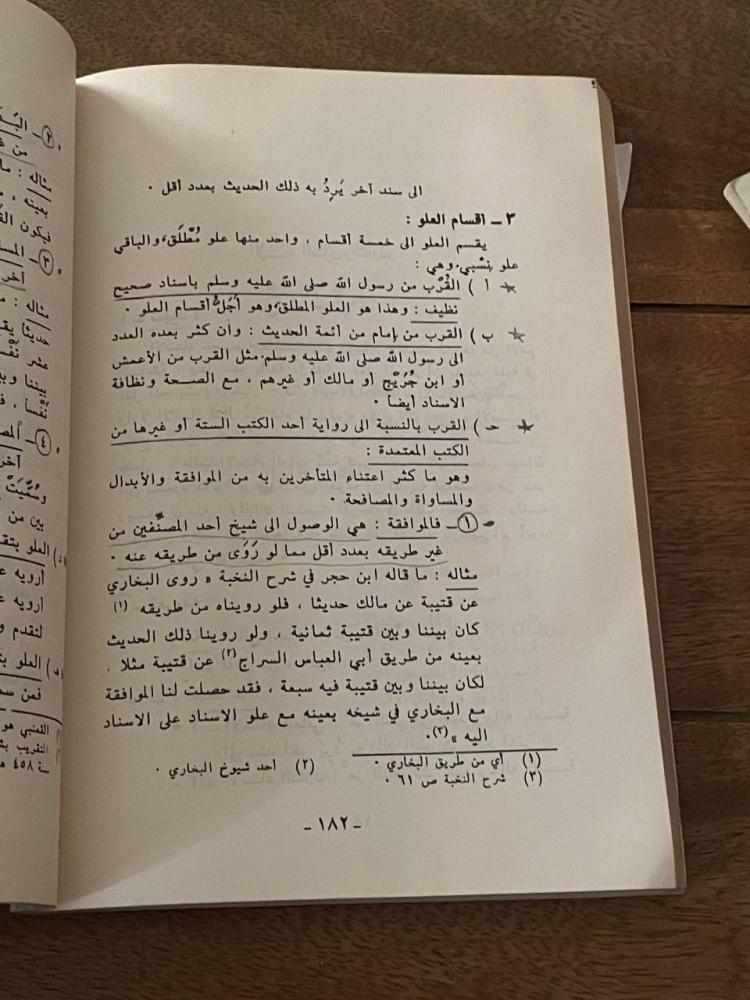 الى سند آخر يَرِدُ به ذلك الحديث بعدد أقل .
٣ ـ أقسام العلو :
يقسم العلو الى خمسة أقسام ، واحد منها علو مُطْلَق، والباقي
علو نِسْبي. وهي :
أ ) القُرْب من رسول الله صلى الله عليه وسلم باسناد صحيح
نظيف : وهذا هو العلو المطلق، وهو أَجَلُّ أقسام العلو .
ب ) القرب من إمام من أئمة الحديث : وان كثر بعده العدد
الى رسول الله صلى الله عليه وسلم. مثل القرب من الأعمش
أو ابن جُرَيْج أو مالك أو غيرهم ، مع الصحة ونظافة
الاسناد أيضاً .
حـ ) القرب بالنسبة الى رواية أحد الكتب الستة أو غيرها من
الكتب المعتمدة :
وهو ما كثر اعتناء المتأخرين به من الموافقة والأبدال
والمساواة والمصافحة .
١ ـ فالموافقة : هي الوصول الى شيخ أحد المصنِّفين من
غير طريقه بعدد أقل مما لو رَوَى من طريقه عنه .
مثاله : ما قاله ابن حجر في شرح النخبة « روى البخاري
عن قتيبة عن مالك حديثا ، فلو رويناه من طريقه (١)
كان بيننا وبين قتيبة ثمانية ، ولو روينا ذلك الحديث
بعينه من طريق أبي العباس السراج(٢) عن قتيبة مثلا ،
لكان بيننا وبين قتيبة فيه سبعة ، فقد حصلت لنا الموافقة
مع البخاري في شيخه بعينه مع علو الاسناد على الاسناد
اليه »(٣).
(١) أي من طريق البخاري .
(٢) أحد شيوخ البخاري .
(٣) شرح النخبة ص ٦١ .
ـ ١٨٢ ـ
٢ ـ
من
مثاله : ما
بعينه ،
فيكون
٣ ـ
آخر
مثاله :
حديثا
عشر
بيننا
نَفْساً ،
٤ ـ
آخر
وسُمِّيَتْ
بين من
العلو بتقد
أرويه
أرويه
لتقدم
العلو
فمن
التقريب
سنة ٤٥٨ هـ